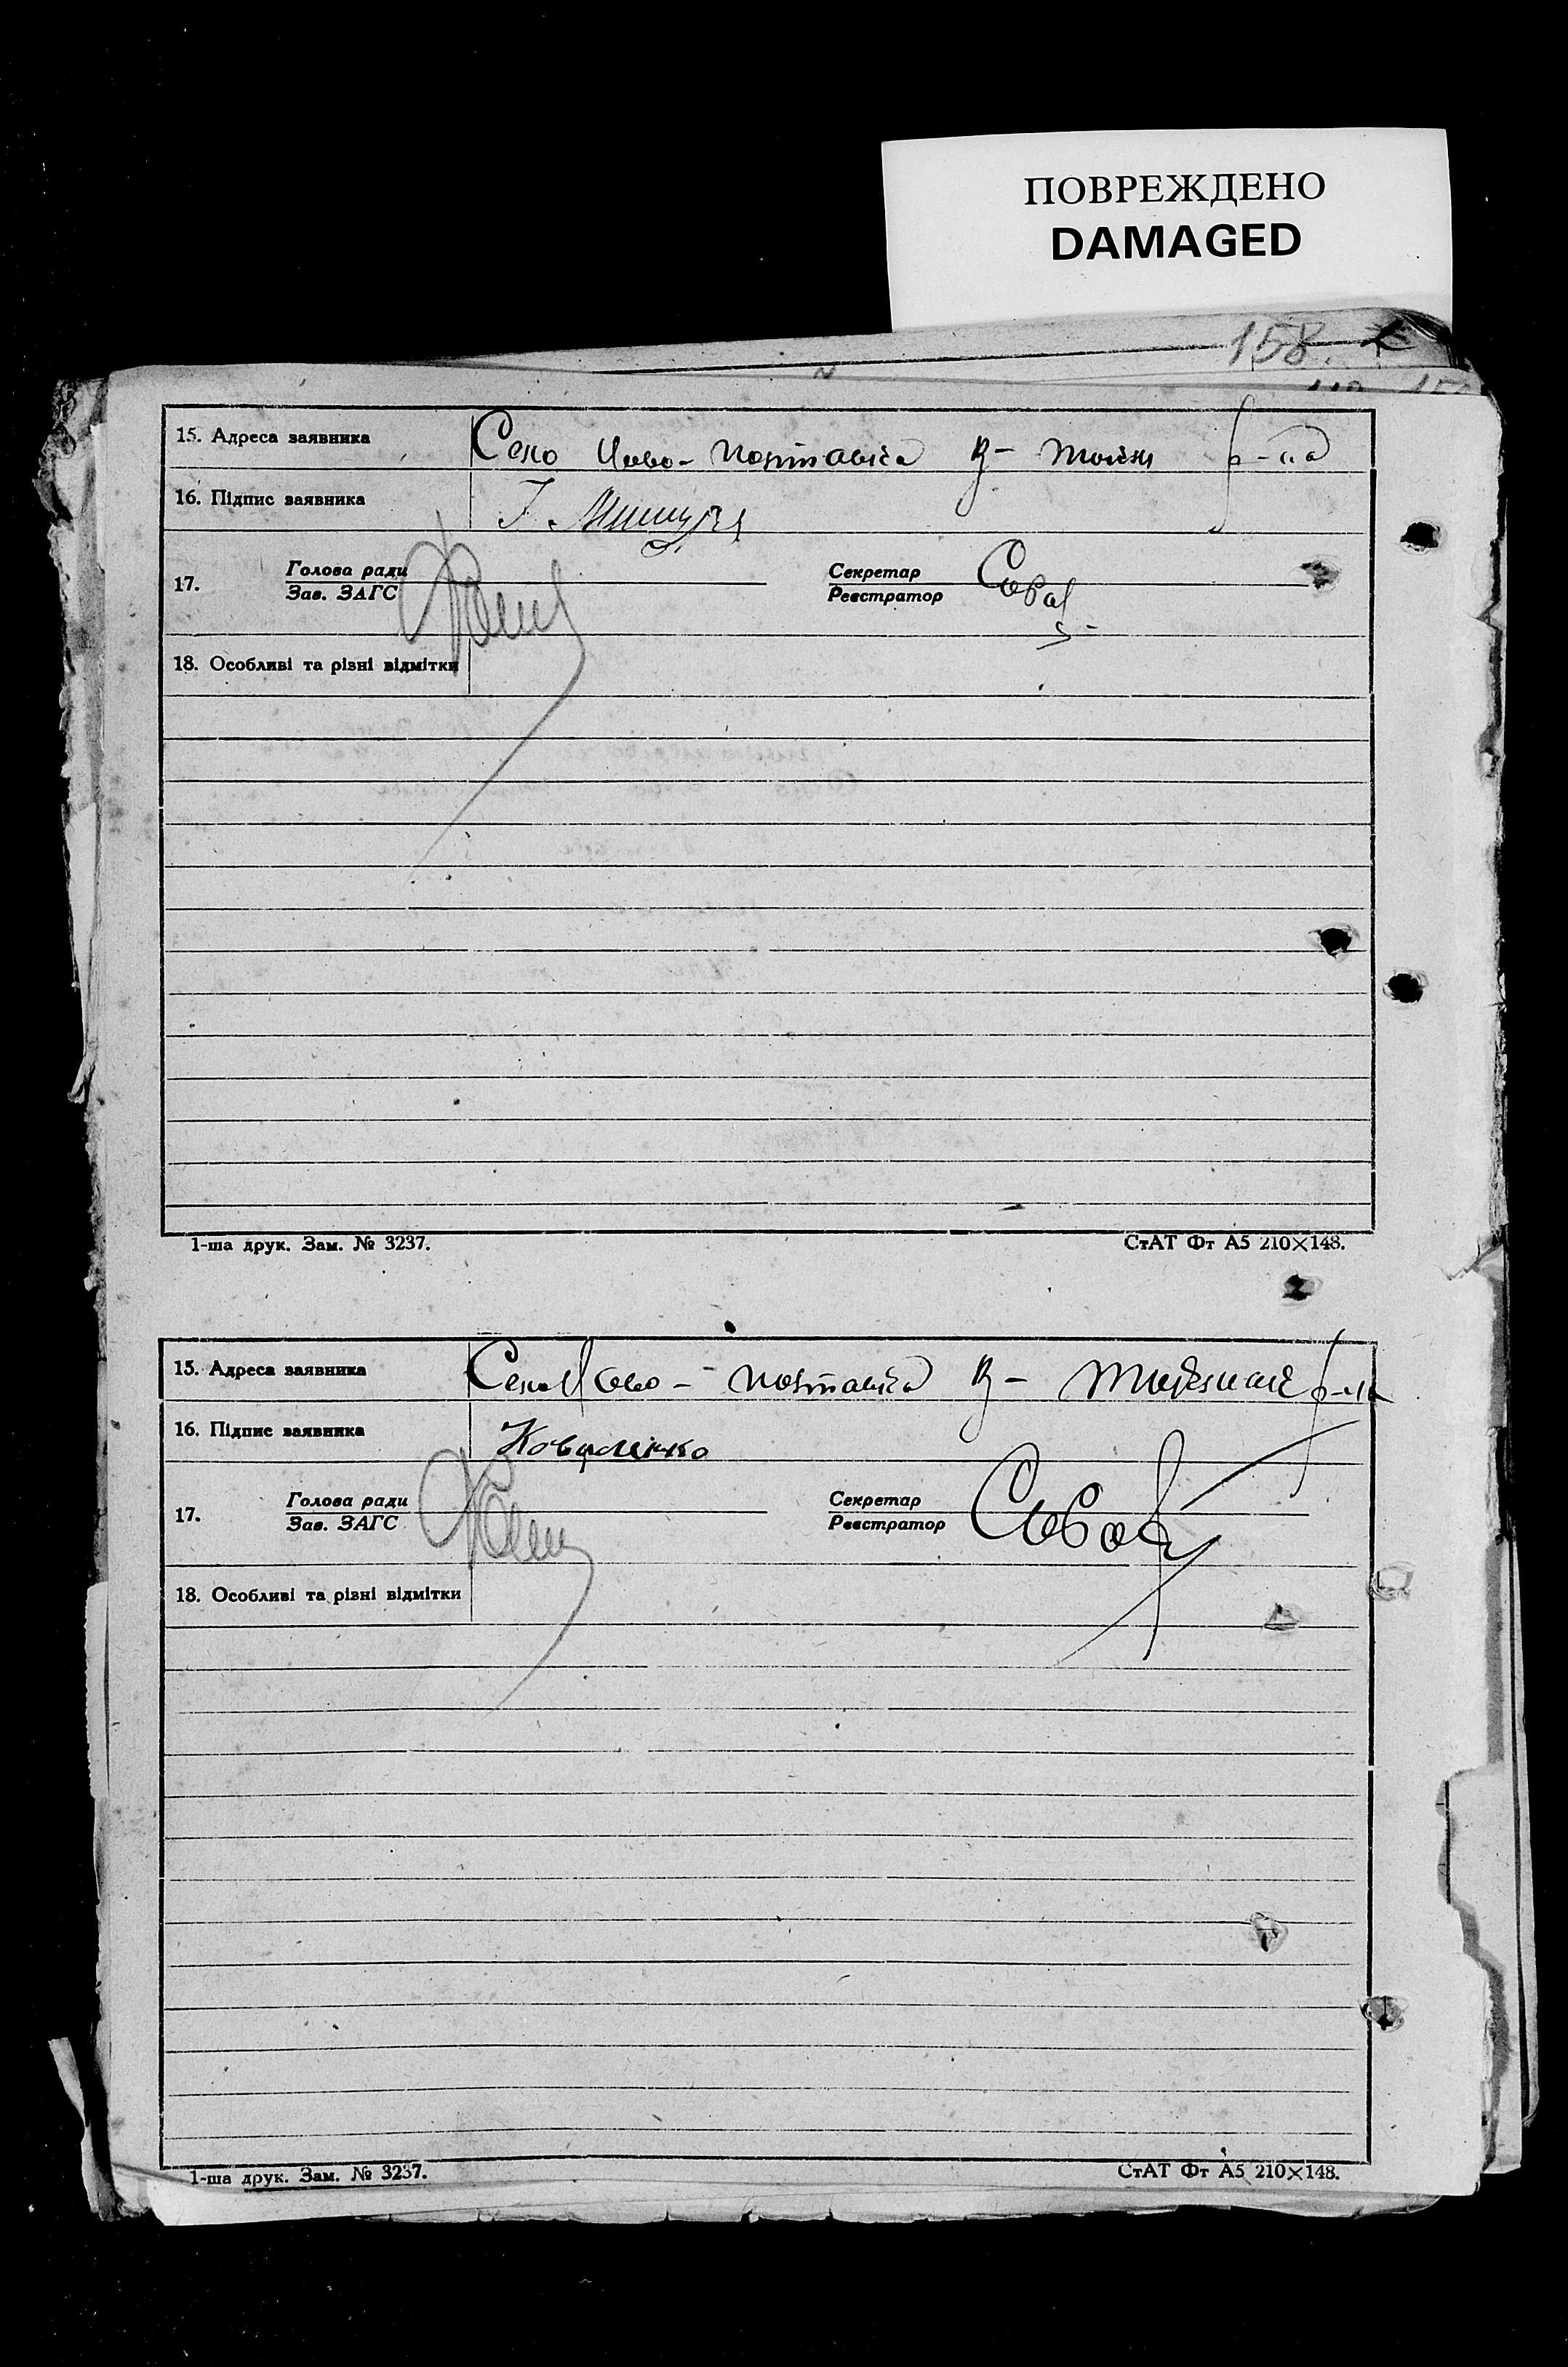 ПОВРЕЖДЕНО
DAMAGED
158.
15. Адреса заявника Село Ново- р-на
16. Підпис заявника
17. Голова ради Секретар
Зав. ЗАГС Реєстратор
18. Особливі та різні відмітки
1-ша друк. Зам. № 3237. СтАТ Фт А5 210×148.
15. Адреса заявника Село Ново- р-на
16. Підпис заявника Коваленко
17. Голова ради Секретар
Зав. ЗАГС Реєстратор
18. Особливі та різні відмітки
1-ша друк. Зам. № 3237. СтАТ Фт А5 210×148.